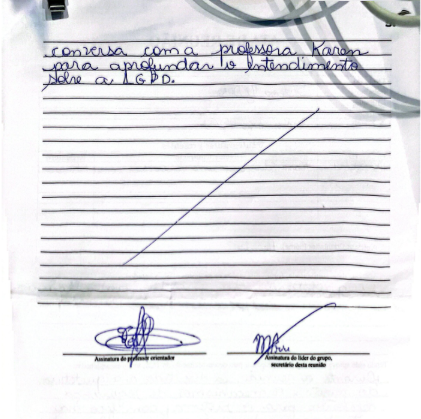 conversa com a professora Karen
para aprofundar o entendimento
sobre a LGPD.
Assinatura do professor orientador
Assinatura do líder do grupo,
secretário desta reunião